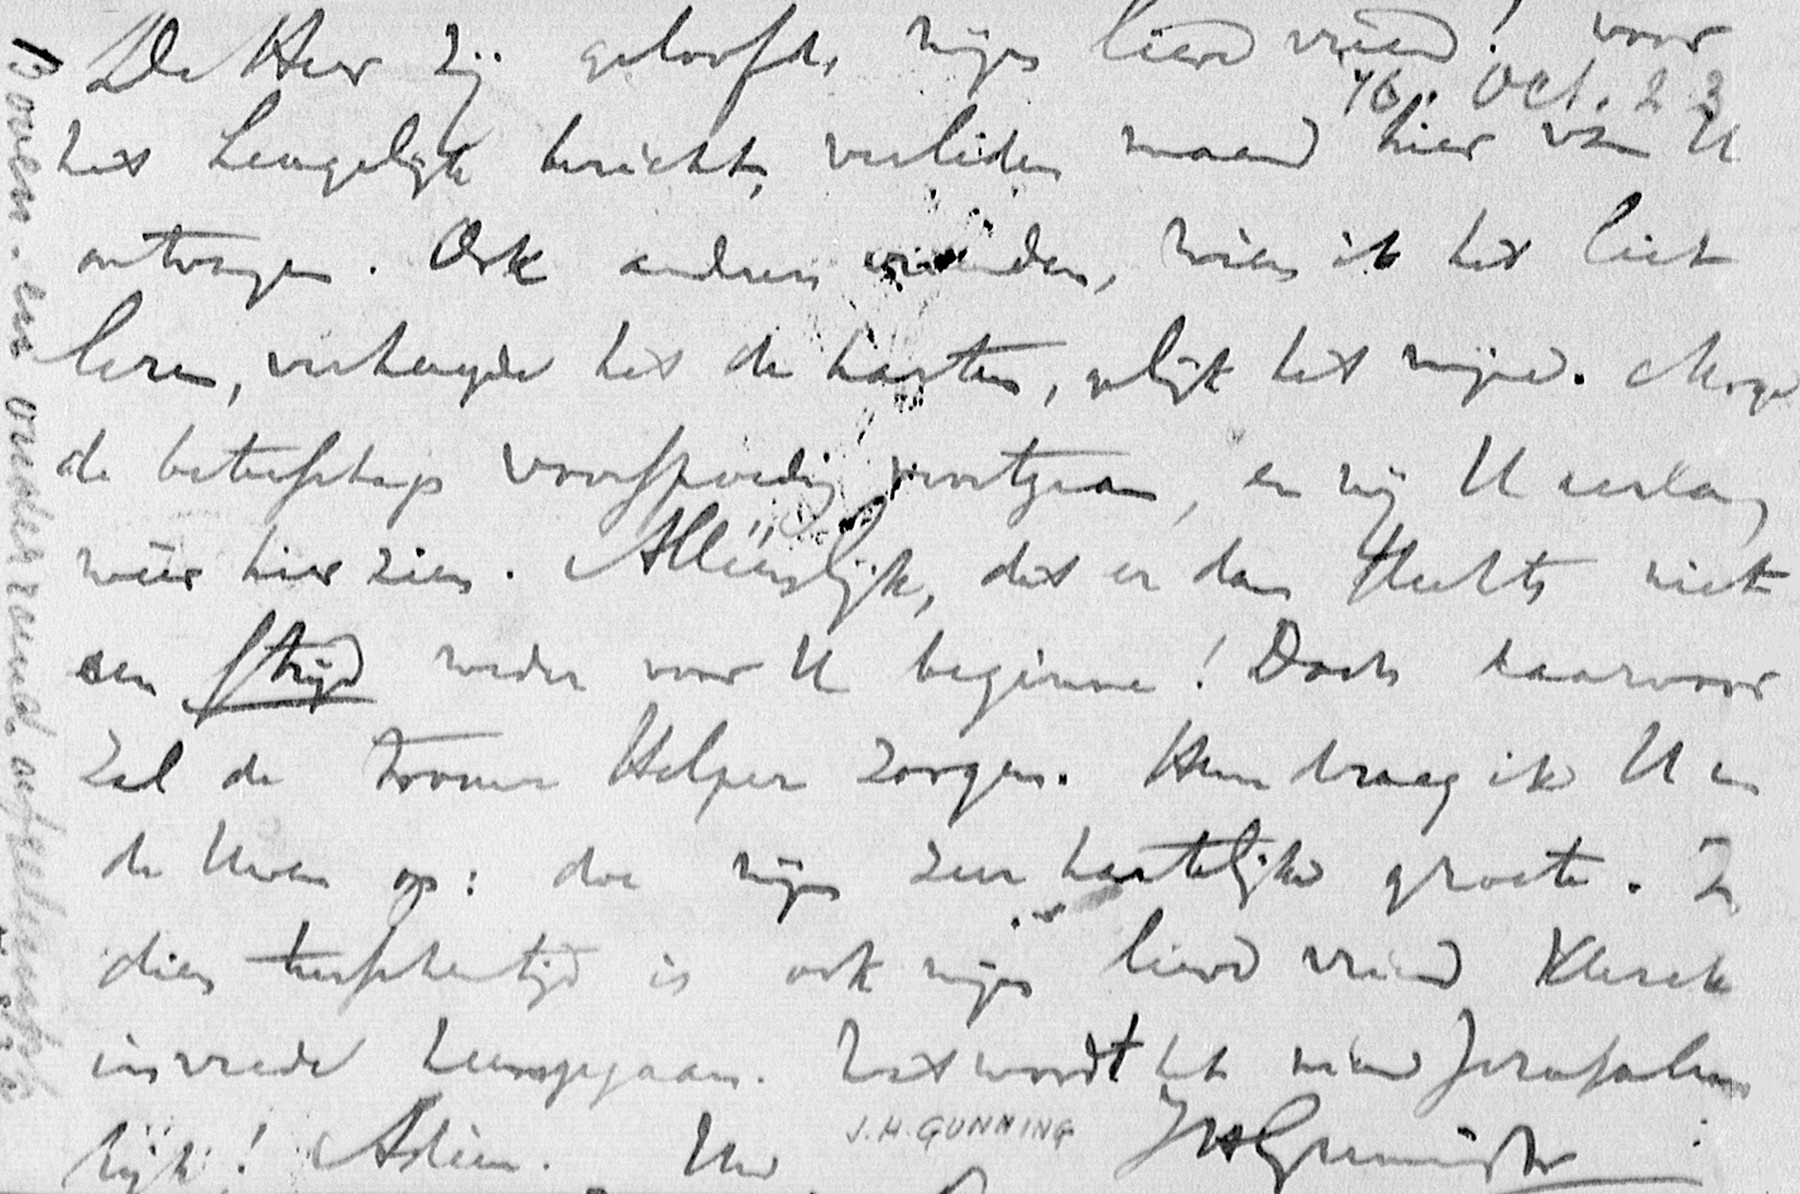 De Heer zij geloofd, mijn lieve vriend! voor
16. Oct. 23
het heugelijk bericht, verleden maand hier van U
ontvangen. Ook andere vrienden, wien ik het liet
lezen, verheugde het de harten, gelijk het mijne. Moge
de beterschap voorspoedig voortgaan, en wij U eerlang
wéér hier zien. Alléénlijk, dat er dan slechts niet
een strijd weder voor U beginne! Doch daarvoor
zal de trouwe Helper zorgen. Hem draag ik U en
de Uwen op: doe mijn zeer hartelijke groete. In
dien tusschentijd is ook mijn lieve vriend Klerck
in vrede heengegaan. Wat wordt het nieuw Jerusalem
rijk! Adieu. Uw JHGunning JHz
J.H. GUNNING
Boven- en onderrand